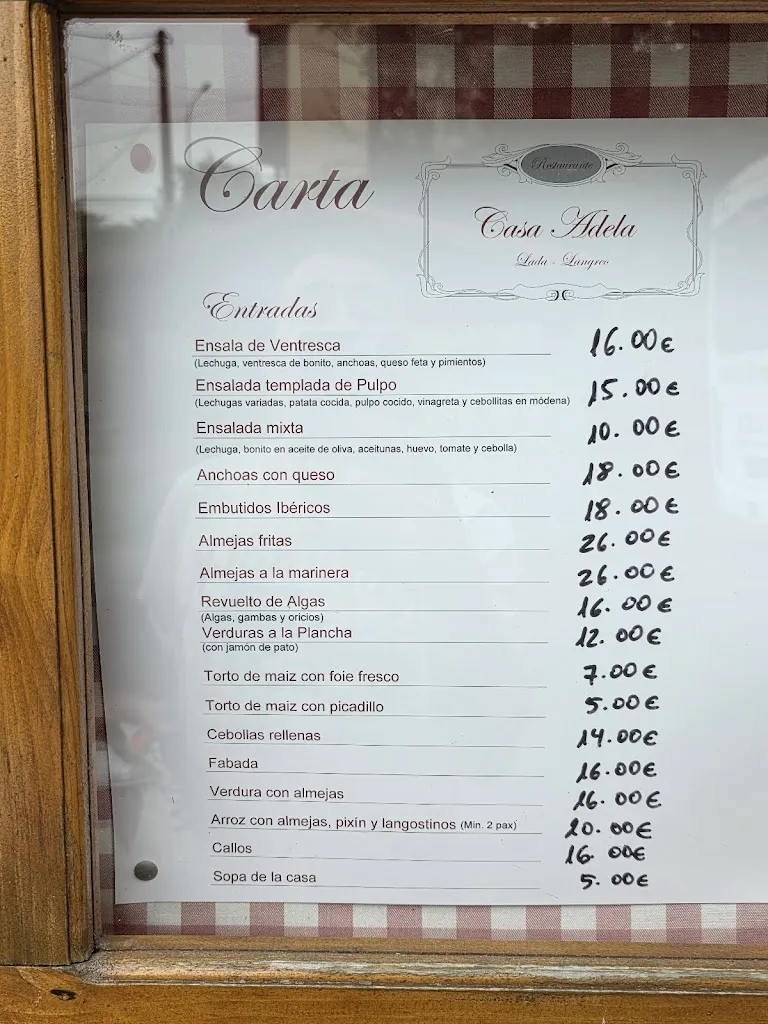 Carta
Restaurante
Casa Adela
Lada - Langreo
Entradas
Ensala de Ventresca 16.00€
(Lechuga, ventresca de bonito, anchoas, queso feta y pimientos)
Ensalada templada de Pulpo 15.00€
(Lechugas variadas, patata cocida, pulpo cocido, vinagreta y cebollitas en módena)
Ensalada mixta 10.00€
(Lechuga, bonito en aceite de oliva, aceitunas, huevo, tomate y cebolla)
Anchoas con queso 18.00€
Embutidos Ibéricos 18.00€
Almejas fritas 26.00€
Almejas a la marinera 26.00€
Revuelto de Algas 16.00€
(Algas, gambas y oricios)
Verduras a la Plancha 12.00€
(con jamón de pato)
Torto de maiz con foie fresco 7.00€
Torto de maiz con picadillo 5.00€
Cebollas rellenas 14.00€
Fabada 16.00€
Verdura con almejas 16.00€
Arroz con almejas, pixín y langostinos (Min. 2 pax) 20.00€
Callos 16.00€
Sopa de la casa 5.00€